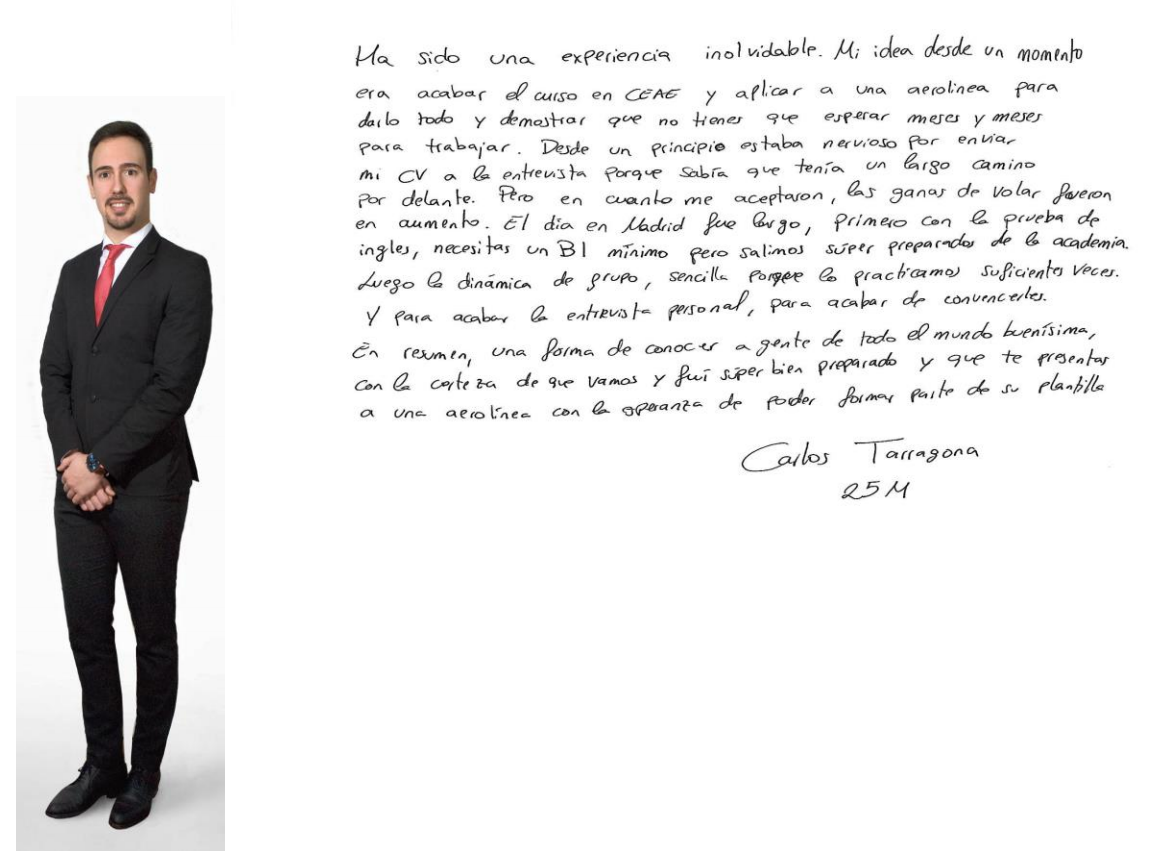 Ha sido una experiencia inolvidable. Mi idea desde un momento
era acabar el curso en CEAE y aplicar a una aerolinea para
darlo todo y demostrar que no tienes que esperar meses y meses
para trabajar. Desde un principio estaba nervioso por enviar
mi CV a la entrevista porque sabía que tenía un largo camino
por delante. Pero en cuanto me aceptaron, las ganas de volar fueron
en aumento. El día en Madrid fue largo, primero con la prueba de
ingles, necesitas un B1 mínimo pero salimos súper preparados de la academia.
Luego la dinámica de grupo, sencilla porque la practicamos suficientes veces.
Y para acabar la entrevista personal, para acabar de convencerles.
En resumen, una forma de conocer a gente de todo el mundo buenísima,
con la certeza de que vamos y fuí súper bien preparado y que te presentas
a una aerolínea con la esperanza de poder formar parte de su plantilla
Carlos Tarragona
25M